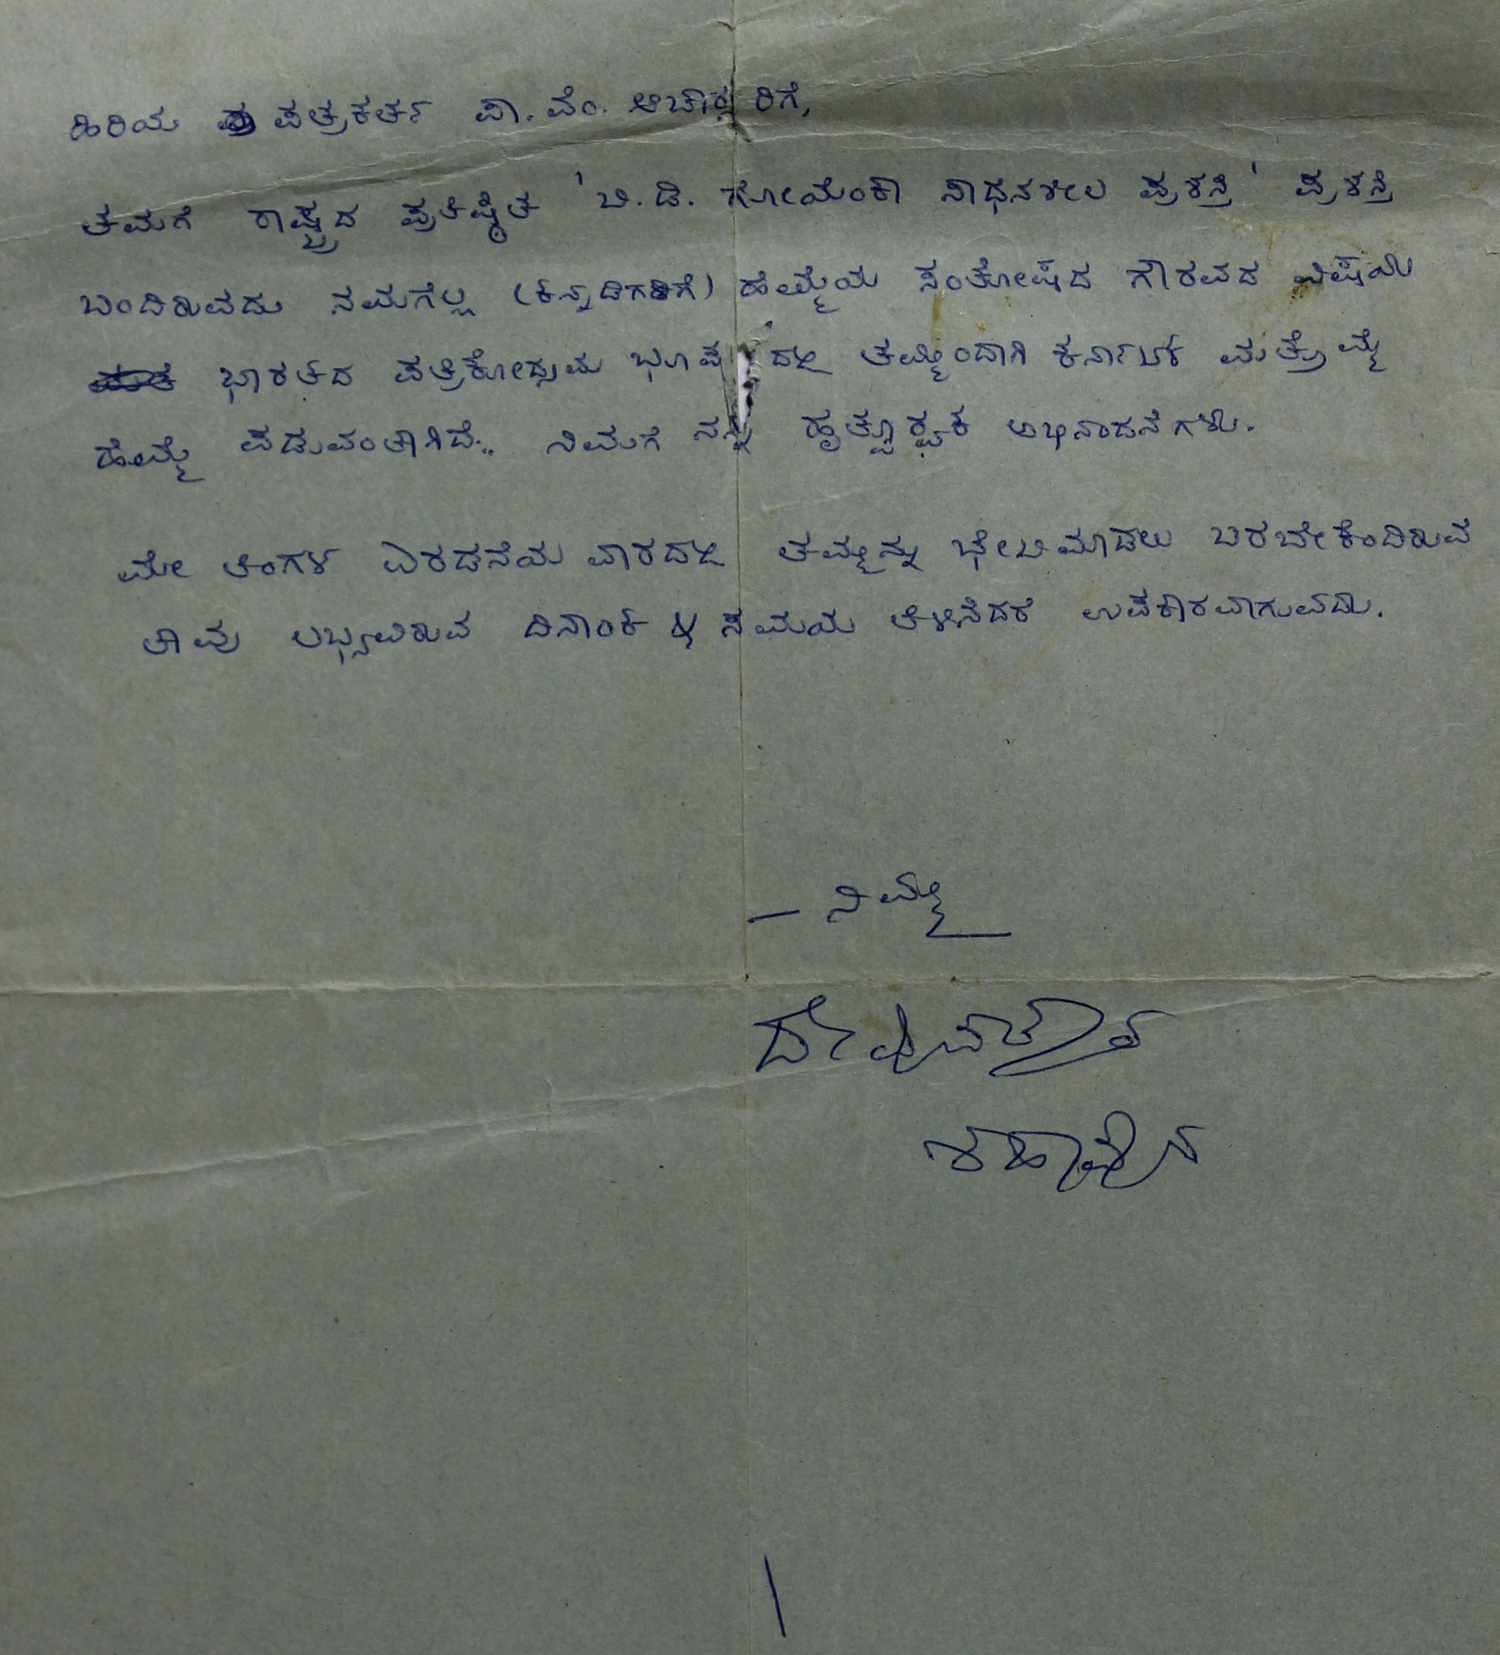 ಹಿರಿಯ ಪತ್ರಕರ್ತ ಪಾ. ವೆಂ. ಆಚಾರ್ಯ ರಿಗೆ,
ತಮಗೆ ರಾಷ್ಟ್ರದ ಪ್ರತಿಷ್ಠಿತ 'ಬಿ. ಡಿ. ಗೋಯೆಂಕಾ ಸಾಧನಶೀಲ ಪ್ರಶಸ್ತಿ' ಪ್ರಶಸ್ತಿ
ಬಂದಿರುವದು ನಮಗೆಲ್ಲ (ಕನ್ನಡಿಗರಿಗೆ) ಹೆಮ್ಮೆಯ ಸಂತೋಷದ ಗೌರವದ ವಿಷಯ
ಭಾರತದ ಪತ್ರಿಕೋದ್ಯಮ ತಮ್ಮಿಂದಾಗಿ ಕರ್ನಾಟಕ ಮತ್ತೊಮ್ಮೆ
ಹೆಮ್ಮೆ ಪಡುವಂತಾಗಿದೆ.. ನಿಮಗೆ ನನ್ನ ಹೃತ್ಪೂರ್ವಕ ಅಭಿನಂದನೆಗಳು.
ಮೇ ತಿಂಗಳ ಎರಡನೆಯ ವಾರದಲ್ಲಿ ತಮ್ಮನ್ನು ಭೇಟಿಮಾಡಲು ಬರಬೇಕೆಂದಿರುವೆ
ತಾವು ಲಭ್ಯವಿರುವ ದಿನಾಂಕ & ಸಮಯ ತಿಳಿಸಿದರೆ ಉಪಕಾರವಾಗುವದು.
– ನಿಮ್ಮ